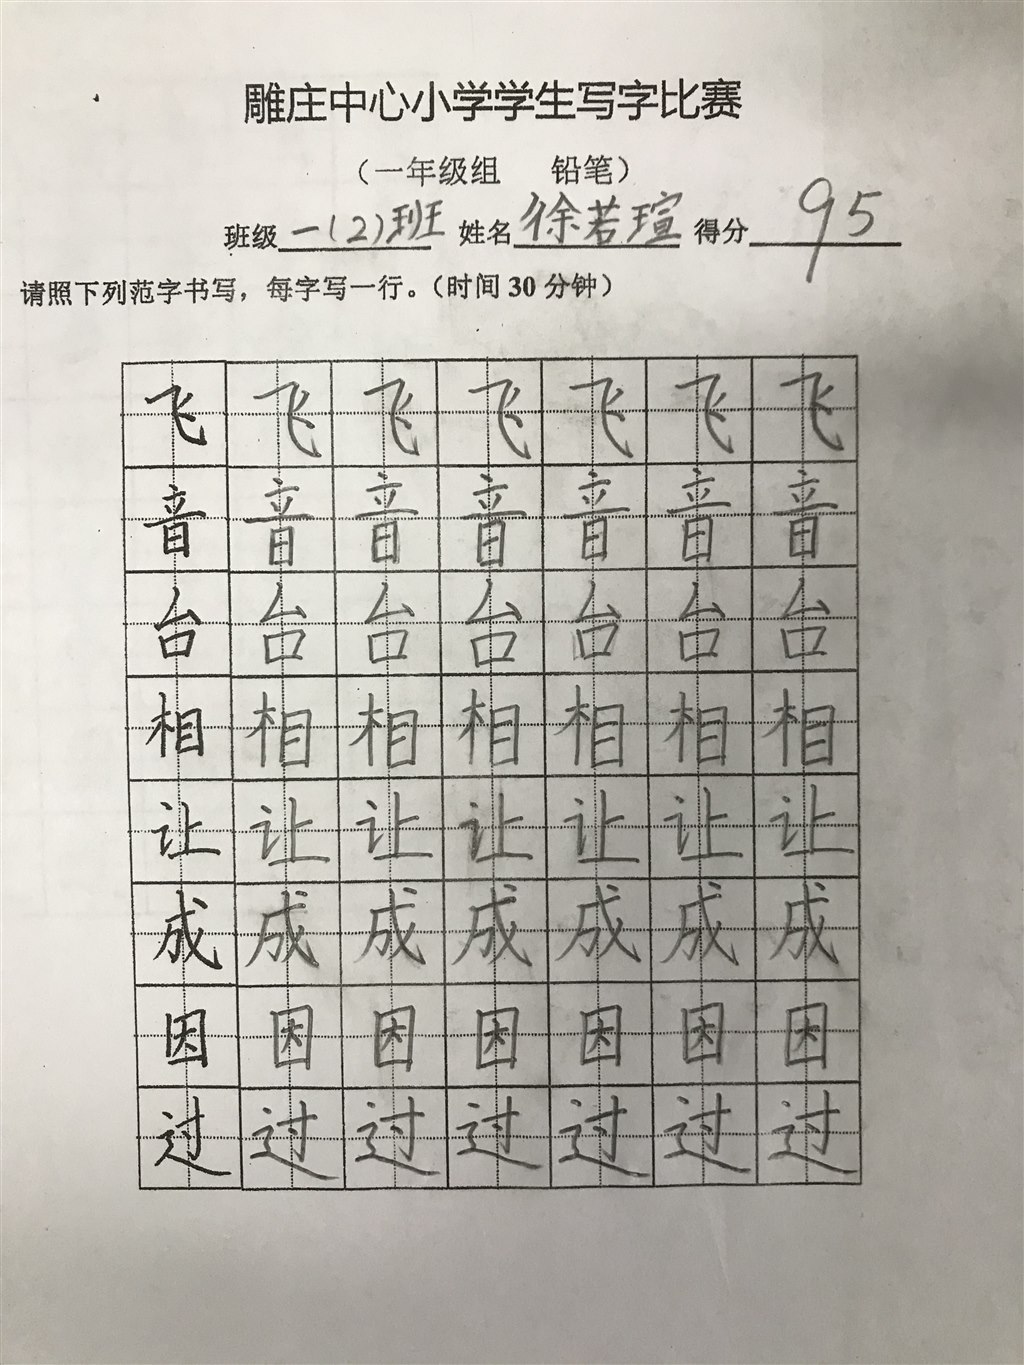 雕庄中心小学学生写字比赛
（一年级组 铅笔）
班级一(2)班 姓名徐若瑄 得分95
请照下列范字书写，每字写一行。（时间 30 分钟）
飞 飞 飞 飞 飞 飞 飞
音 音 音 音 音 音 音
台 台 台 台 台 台 台
相 相 相 相 相 相 相
让 让 让 让 让 让 让
成 成 成 成 成 成 成
因 因 因 因 因 因 因
过 过 过 过 过 过 过